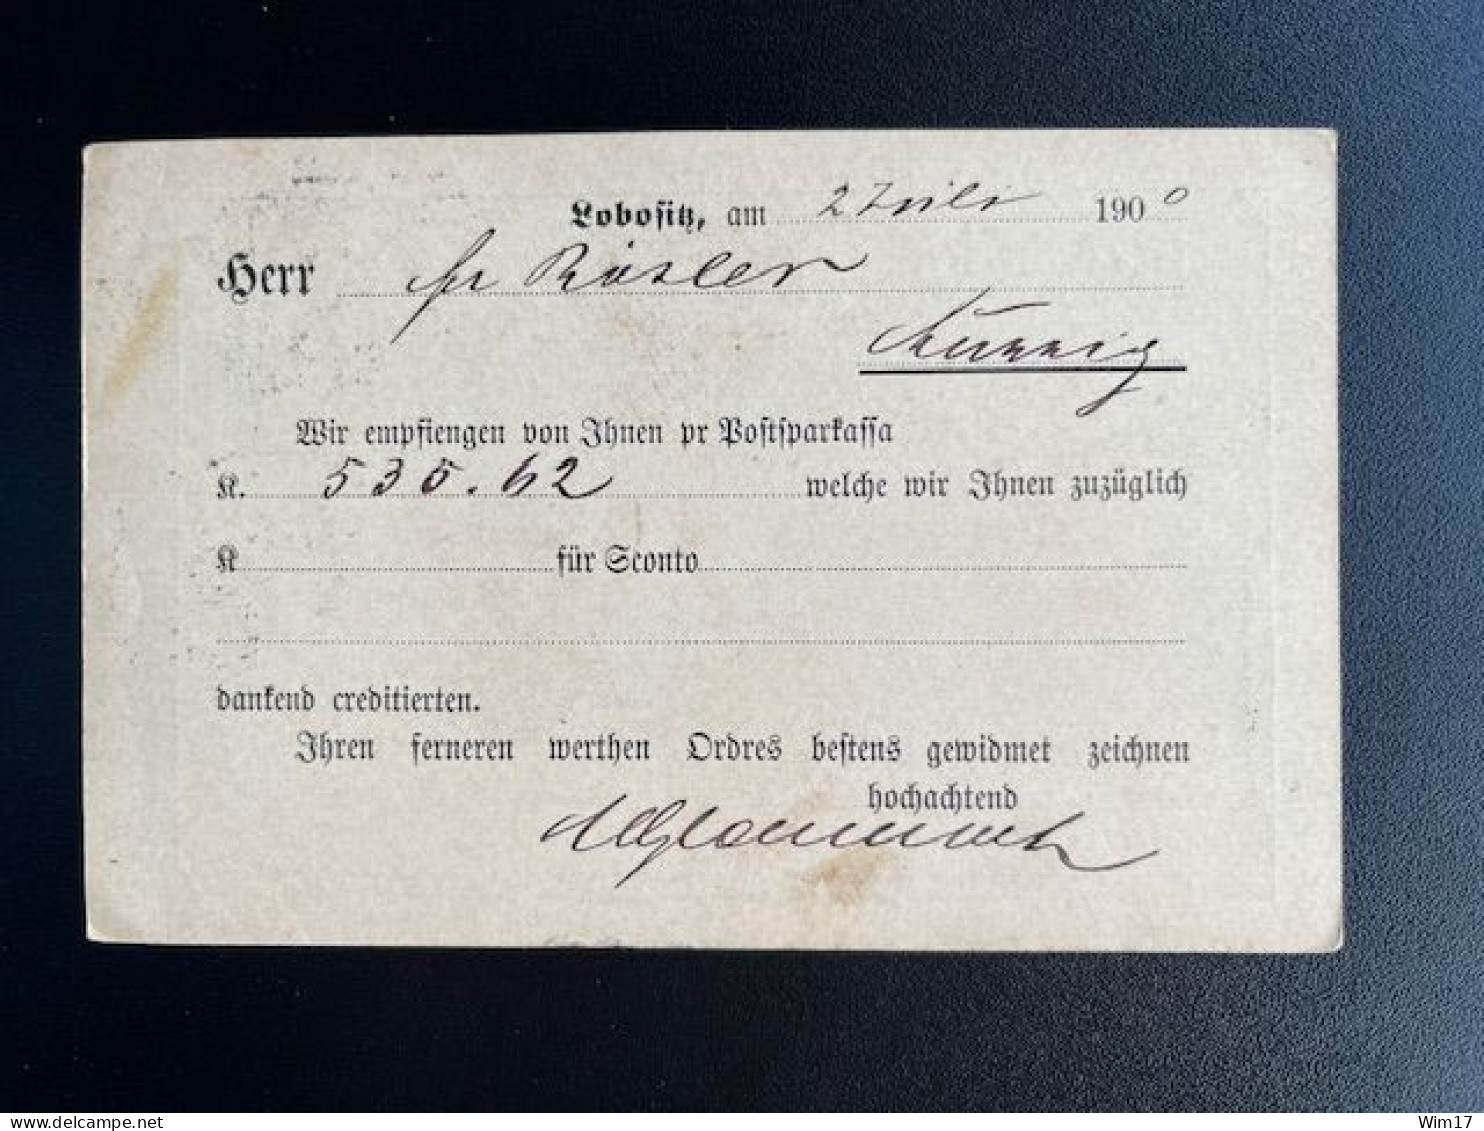 Lobositz, am 2 Juli 1900
Herr Fr Rösler
Wir empfiengen von Ihnen pr Postsparkassa
K. 535.62 welche wir Ihnen zuzüglich
K für Sconto
dankend creditierten.
Ihren ferneren werthen Ordres bestens gewidmet zeichnen
hochachtend
delcampe.net
Wim17